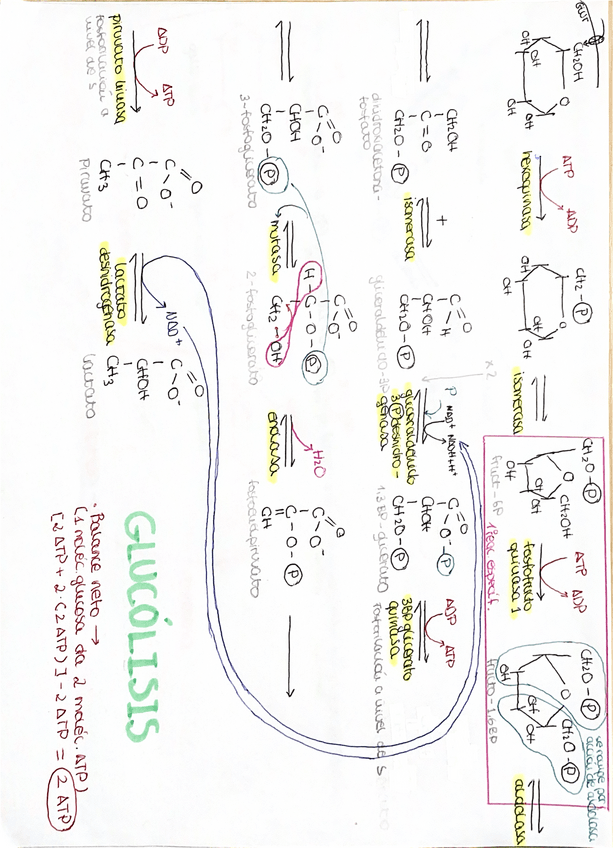 GLUT
CH₂OH
O
OH
OH
OH
OH
ATP
ADP
hexoquinasa
CH₂-P
O
OH
OH
OH
OH
isomerasa
CH₂O-P
O
CH₂OH
OH
OH
OH
fruct-6P
1ª reac. específ.
ATP
ADP
fosfofructo
quinasa 1
CH₂O-P
O
CH₂O-P
OH
OH
OH
fructo-1,6BP
se rompe por
acción de aldolasa
aldolasa
CH₂OH
C=O
CH₂O-P
dihidroxiacetona-
fosfato
+
isomerasa
O
C-H
CHOH
CH₂O-P
gliceraldehído-3P
x2
P
NAD+
NADH+H+
gliceraldehído
3P deshidro-
genasa
O
C-O-P
CHOH
CH₂O-P
1,3BP-glicerato
ADP
ATP
3BP glicerato
quinasa
fosforilación a nivel de S
O
C-O-
CHOH
CH₂O-P
3-fosfoglicerato
mutasa
O
C-O-
H-C-O-P
CH₂-OH
2-fosfoglicerato
H₂O
enolasa
O
C-O-
C-O-P
CH
fosfoenolpiruvato
ADP
ATP
piruvato quinasa
fosforilación a
nivel de S
O
C-O-
C=O
CH₃
piruvato
NAD+
lactato
deshidrogenasa
O
C-O-
CHOH
CH₃
lactato
GLUCÓLISIS
· Balance neto →
(1 moléc glucosa da 2 moléc. ATP)
[2 ATP + 2·(2 ATP)] - 2 ATP = 2 ATP